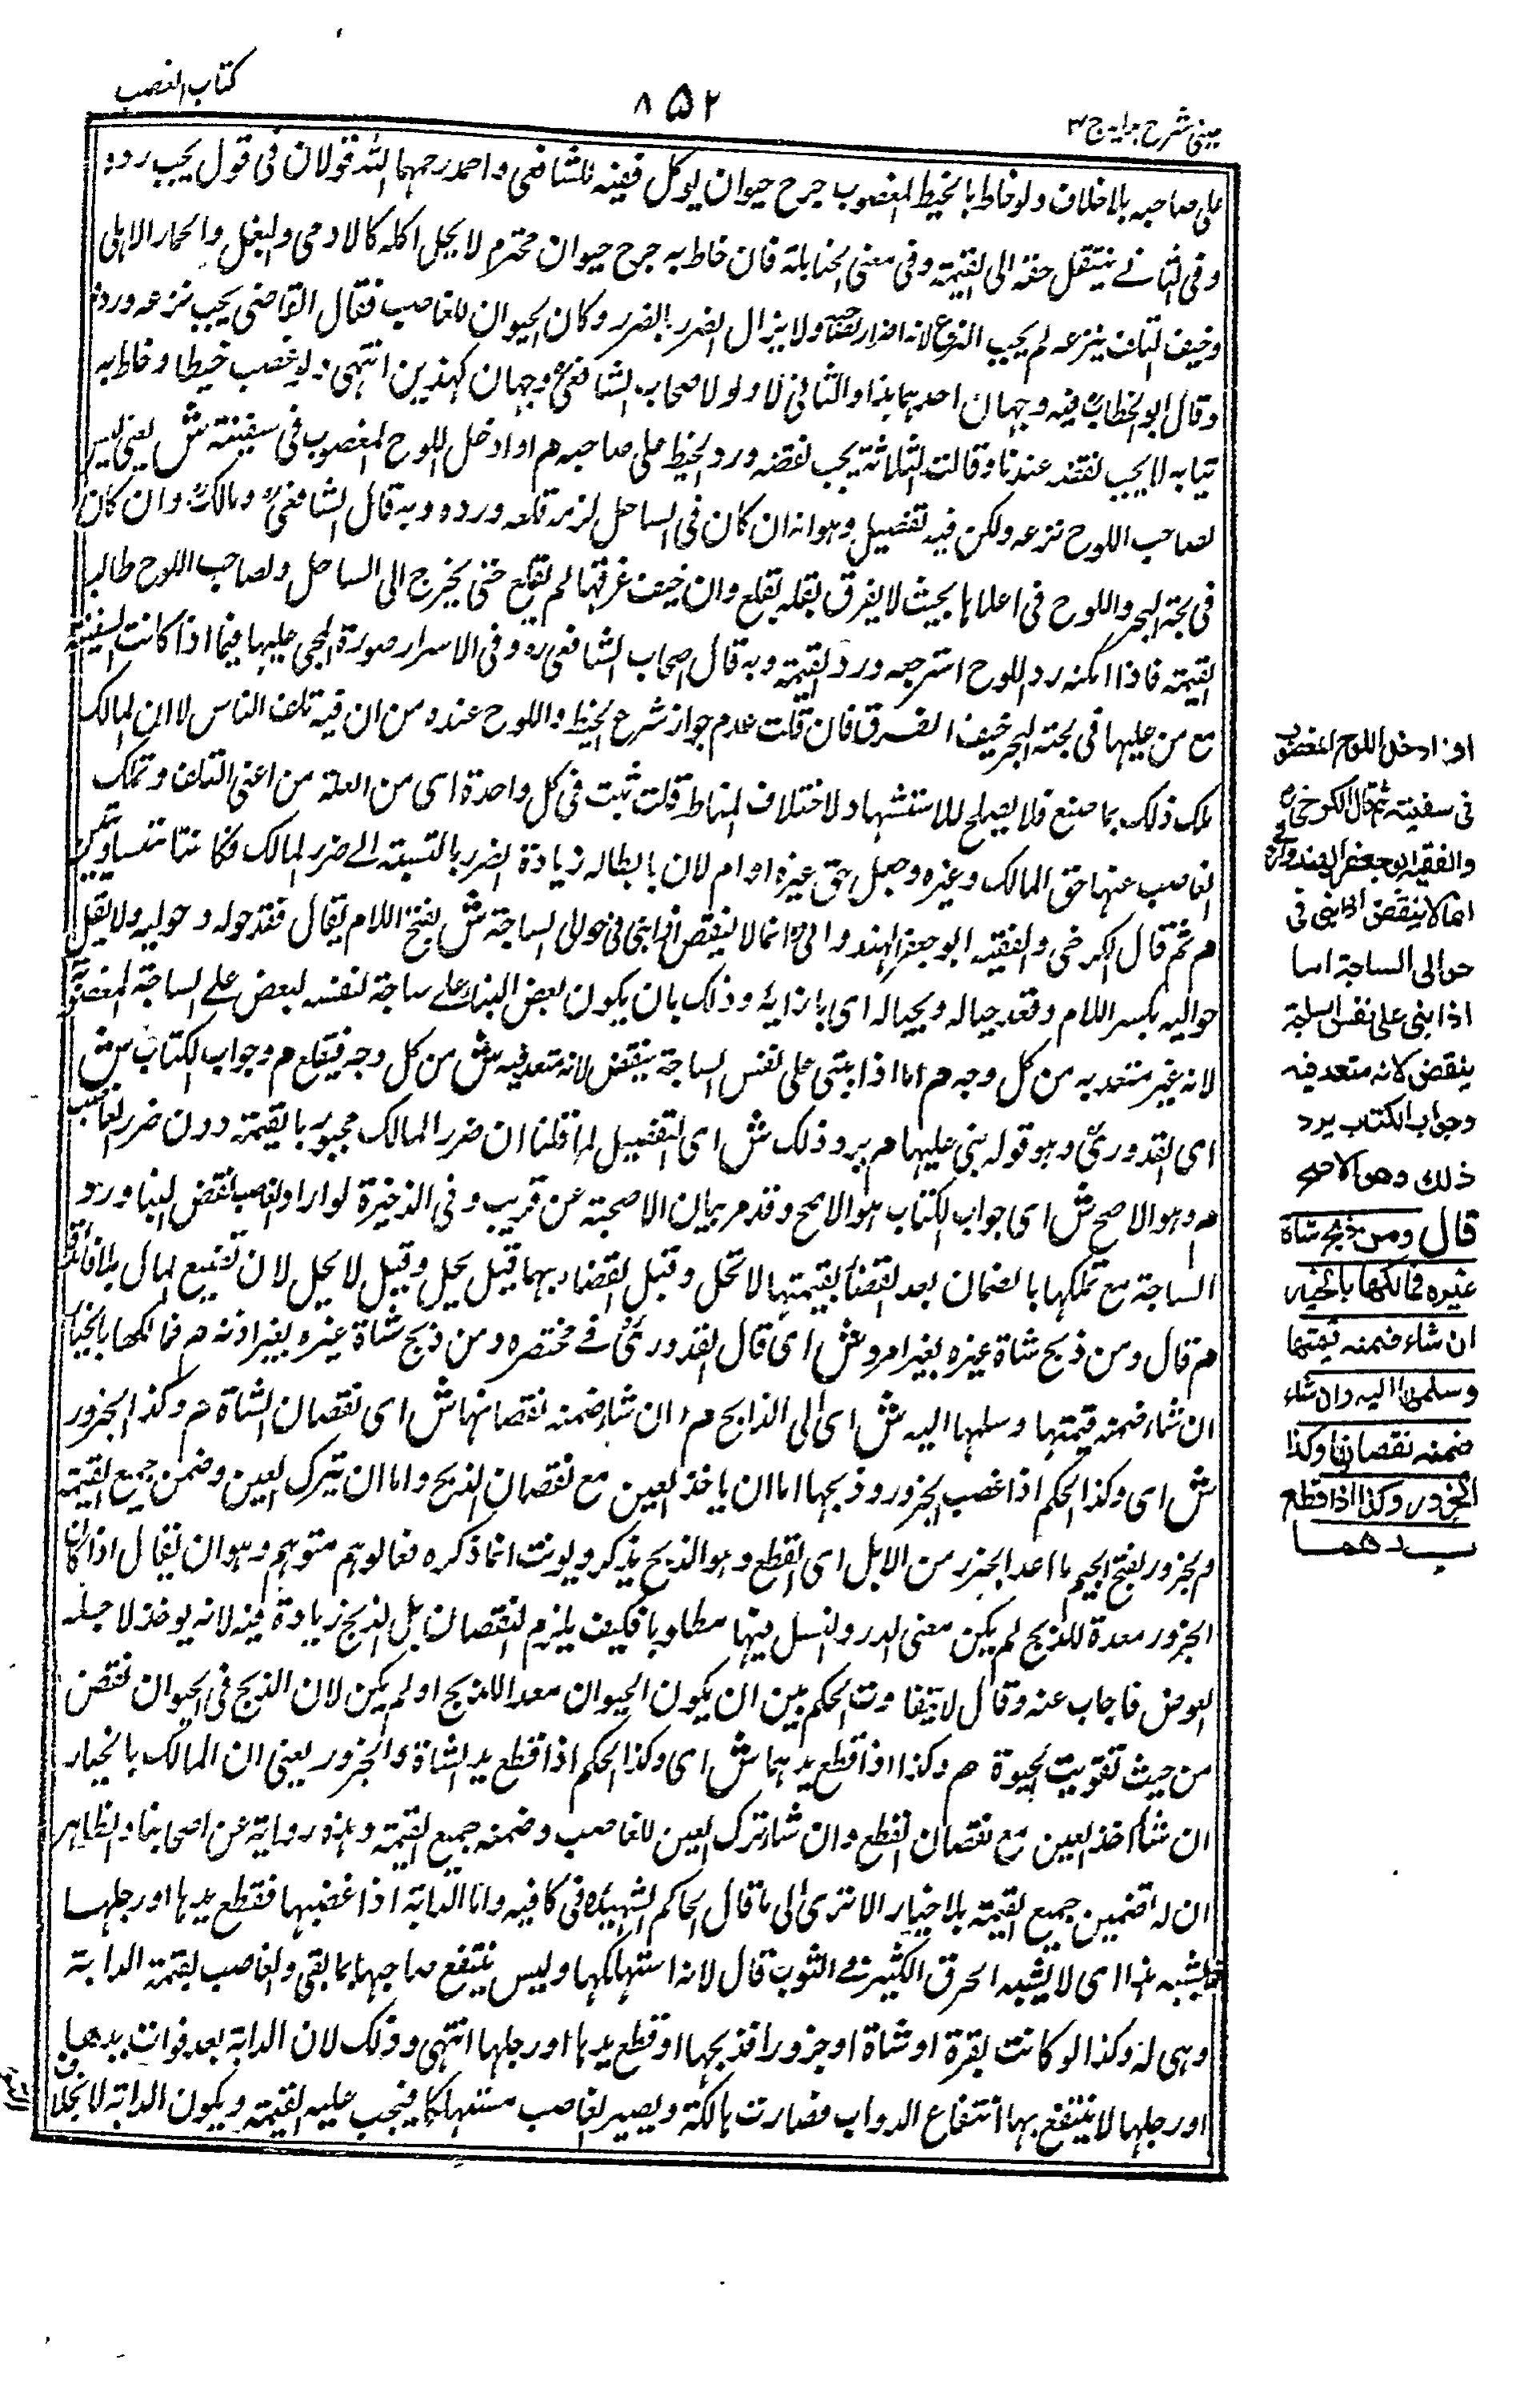 كتاب الغصب
٨٥٢
عينى شرح هدايه ج٣
على صاحبه بلا خلاف ولو خاط بالخيط المغصوب جرح حيوان يوكل ففيه للشافعى واحمد رحمهما الله قولان فى قول يجب رده
وفى الثانے ينتقل حقه الى القيمة وفى مغنى الحنابلة فان خاط به جرح حيوان محترم لا يحل اكله كالادمى والبغل والحمار الاهلى
وخيف التلف بنزعه لم يجب النزع لانه اضرار بصاحبه ولا يزال الضرر بالضرر وكان الحيوان للغاصب فقال القاضى يجب نزعه ورده
وقال ابو الخطاب فيه وجهان احدهما هذا والثانى لا ولو لاصحاب الشافعىؒ وجهان كهذين انتهى ولو غصب خيطا وخاط به
ثيابه لا يجب نقضه عندنا وقالت الثلاثة يجب نقضه ورد الخيط على صاحبه م او ادخل اللوح المغصوب فى سفينته ش يعنى ليس
لصاحب اللوح نزعه ولكن فيه تفصيل وهو انه ان كان فى الساحل لزم قلعه ورده وبه قال الشافعىؒ ومالكؒ وان كان
فى لجة البحر واللوح فى اعلاها بحيث لا يغرق بقلعه يقلع وان خيف غرقها لم يقلع حتى يخرج الى الساحل ولصاحب اللوح طالبا
القيمة فاذا امكنه رد اللوح استرجعه ورد القيمة وبه قال اصحاب الشافعى ره وفى الاسرار صورة المجئ عليها فيما اذا كانت السفينة
مع من عليها فى لجة البحر خيف الغرق فان قلت عدم جواز نزع الخيط واللوح عنده من ان فيه تلف الناس لا ان المالك
ملك ذلك بما صنع فلا يصلح للاستشهاد لاختلاف المناط قلت ثبت فى كل واحدة اى من العلة من اعنى التلف وتملك
الغاصب عنها حق المالك وغيره وجعل حق غيره اولم لان بابطاله زيادة الضرر بالنسبة الے ضرر المالك فكانتا متساويتين
م ثم قال الكرخى والفقيه ابو جعفر الهندوانى انما لا ينقض اذا بنى فى حوالى الساجة ش بفتح اللام يقال قعد حوله وحواليه ولا يقل
حواليه بكسر اللام وقعد حياله وبحياله اى بازائه وذلك بان يكون بعض البناء على ساجة لنفسه لبعض على الساجة المغصوبة
لانه غير متعد به من كل وجه م اما اذا بنى على نفس الساجة ينقض لانه متعد فيه ش من كل وجه فيقلع م وجواب الكتاب ش
اى القدورىؒ وهو قوله بنى عليها م يرد ذلك ش اى التفصيل لما قلنا ان ضرر المالك مجبور بالقيمة دون ضرر الغاصب
م وهو الاصح ش اى جواب الكتاب هو الاصح وقد مر بيان الاصحية عن قريب وفى الذخيرة لو اراد الغاصب نقض البناء ورد
الساجة مع تملكها بالضمان بعد القضاء بقيمتها لا تحل وقبل القضاء بها قيل يحل وقيل لا يحل لان تضييع المال بلا فائدة
م قال ومن ذبح شاة غيره بغير امره ش اى قال القدورىؒ فے مختصره ومن ذبح شاة غيره بغير اذنه م فمالكها بالخيار
ان شاء ضمنه قيمتها وسلمها اليه ش اى الى الذابح م وان شاء ضمنه نقصانها ش اى نقصان الشاة م وكذا الجزور
ش اى وكذا الحكم اذا غصب الجزور وذبحها اما ان ياخذ العين مع نقصان الذبح واما ان يترك العين وضمن جميع القيمة
والجزور بفتح الجيم ما اعد للجزر من الابل اى القطع وهو الذبح يذكر ويونث انما ذكره نفيا لوهم متوهم وهو ان يقال اذا كان
الجزور معدة للذبح لم يكن معنى الدر والنسل فيها مطلوبا فكيف يلزم النقصان بل الذبح زيادة فيه لانه يوخذ لاجله
العوض فاجاب عنه وقال لا يتفاوت الحكم بين ان يكون الحيوان معدا للذبح او لم يكن لان الذبح فى الحيوان نقض
من حيث تفويت الحيوة م وكذا اذا قطع يدهما ش اى وكذا الحكم اذا قطع يد الشاة والجزور يعنى ان المالك بالخيار
ان شاء اخذ العين مع نقصان القطع وان شاء ترك العين للغاصب وضمنه جميع القيمة وهذه رواية عن اصحابنا والظاهر
ان له تضمين جميع القيمة بلا خيار الا ترى الى ما قال الحاكم الشهيدؒ فى كافيه واما الدابة اذا غصبها فقطع يدها او رجلها
فلا يشبه هذا اى لا يشبه الحرق الكثير فے الثوب قال لانه استهلكها وليس ينتفع صاحبها بما بقى وللغاصب بقيمة الدابة
وهى له وكذا لو كانت بقرة او شاة او جزورا فذبحها او قطع يدها او رجلها انتهى وذلك لان الدابة بعد فوات يدها
او رجلها لا ينتفع بها انتفاع الدواب فصارت هالكة ويصير الغاصب مستهلكا فيجب عليه القيمة ويكون الدابة له بخلاف
اذا ادخل اللوح المغصوب
فى سفينته ثم قال الكرخىؒ
والفقيه ابو جعفر الهندوانىؒ
انما لا ينقض اذا بنى فى
حوالى الساجة اما
اذا بنى على نفس الساجة
ينقض لانه متعد فيه
وجواب الكتاب يرد
ذلك وهو الاصح
قال ومن ذبح شاة
غيره فمالكها بالخيار
ان شاء ضمنه قيمتها
وسلمها اليه وان شاء
ضمنه نقصانها وكذا
الجزور وكذا اذا قطع
يدهما